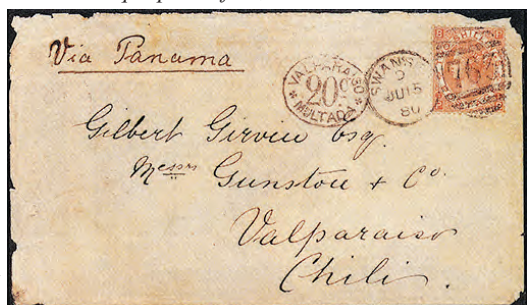 Via Panama
VALPARAISO
20c
MULTADA
SWANS
JU 15
80
Gilbert Girvin Esq.
Messrs Gunston + Co.
Valparaiso
Chili.